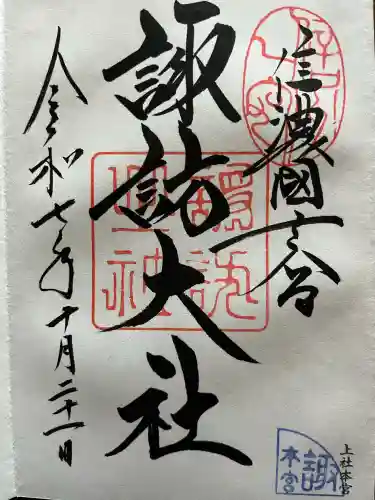 信濃國一之宮
諏訪大社
令和七年十月二十一日
上社本宮
諏
本宮